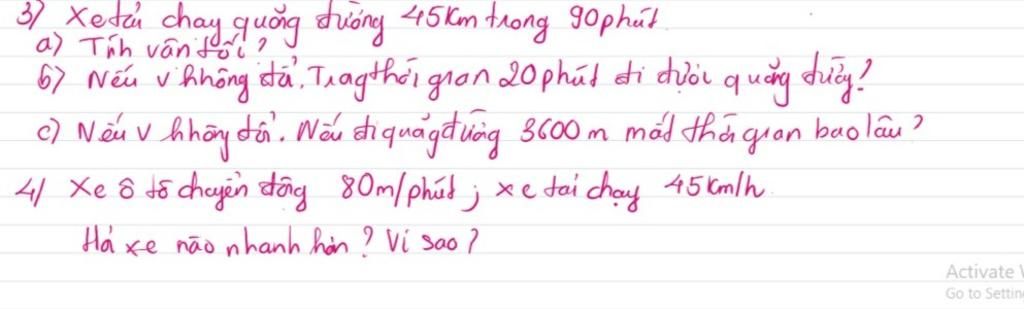 3) Xe tải chạy quãng đường 45Km trong 90 phút.
a) Tính vân tốc?
b) Nếu v không đổi. Trong thời gian 20 phút đi được quãng đường?
c) Nếu v không đổi. Nếu đi quãng đường 3600 m mất thời gian bao lâu?
4/ Xe ô tô chuyển động 80m/phút; xe tải chạy 45km/h.
Hỏi xe nào nhanh hơn? Vì sao?
Activate
Go to Settin